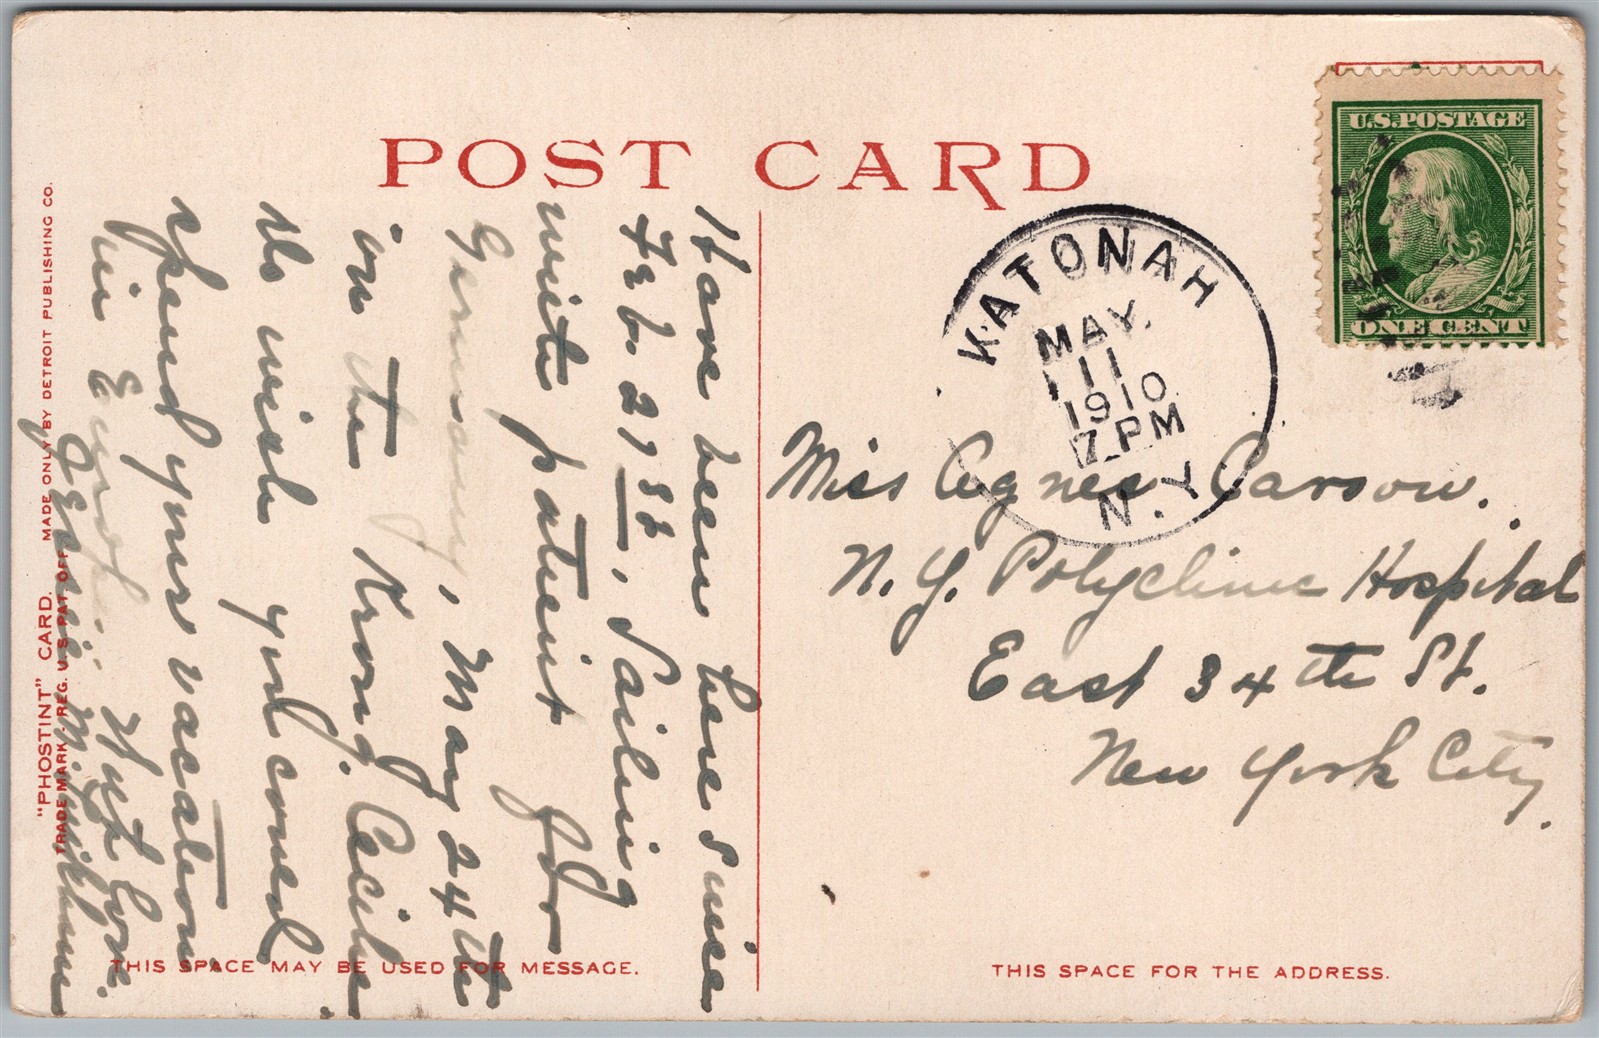 POST CARD
U.S. POSTAGE
ONE CENT
KATONAH
MAY.
11
1910
7 PM
N.Y.
Miss Agnes Carson.
N. Y. Polyclinic Hospital
East 34th St.
New York City.
THIS SPACE FOR THE ADDRESS.
Have been here since
Feb. 21st, Sailing
with patient for
Germany, May 24th
on the Krong. Cecilie.
Do wish you could
spend your vacation
in Europe. Much love.
THIS SPACE MAY BE USED FOR MESSAGE.
"PHOSTINT" CARD. MADE ONLY BY DETROIT PUBLISHING CO.
TRADE MARK - REG. U.S. PAT. OFF.